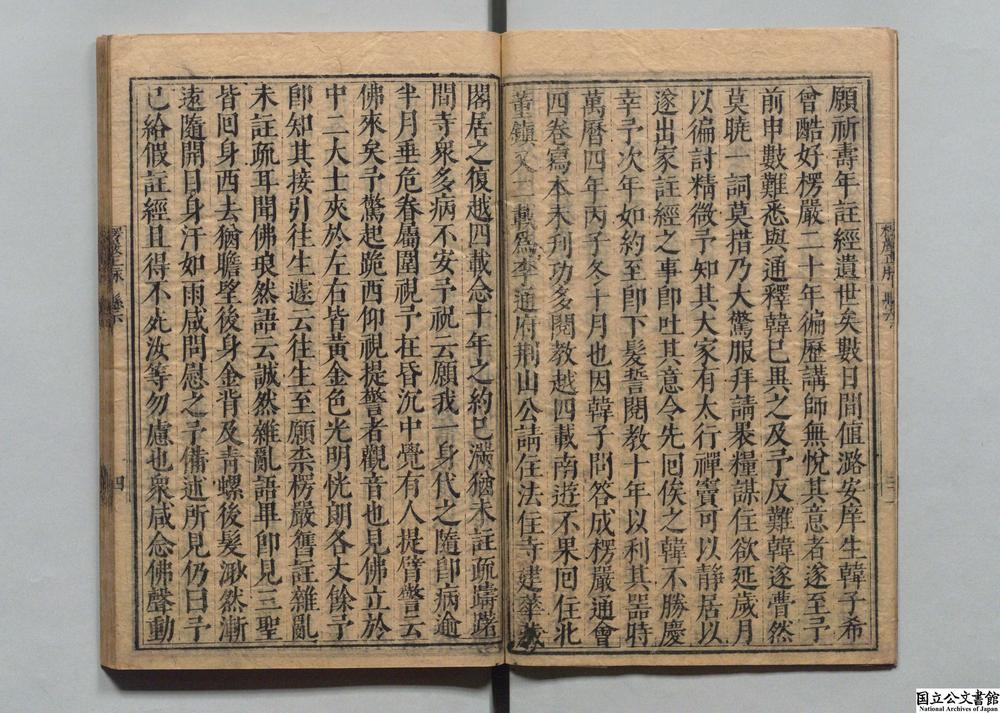 願祈壽年註經遺世矣數日間值潞安庠生韓子希
曾酷好楞嚴二十年徧歷講師無悅其意者遂至予
前申數難悉與通釋韓已異之及予反難韓遂瞢然
莫曉一詞莫措乃大驚服拜請褁糧謀住欲延歲月
以徧討精微予知其大家有太行禪窗可以靜居以
遂出家註經之事即吐其意令先回俟之韓不勝慶
幸予次年如約至即下髮誓閱教十年以利其噐時
萬曆四年丙子冬十月也因韓子問答成楞嚴通會
四卷寫本未刋功多閱教越四載南遊不果回住北
董鎮又二載為李通府荆山公請住法住寺建華藏
閣居之復越四載念十年之約巳滿猶未註疏躊躇
間寺衆多病不安予祝云願我一身代之隨即病逾
半月垂危眷屬圍視予在昏沉中覺有人提臂警云
佛來矣予驚起跪西仰視提警者觀音也見佛立於
中二大士夾於左右皆黃金色光明恍朗各丈餘予
即知其接引往生遽云往生至願柰楞嚴舊註雜亂
未註疏耳聞佛琅然語云誠然雜亂語畢即見三聖
皆回身西去猶瞻望後身金背及青螺後髮澉然漸
遠隨開目身汗如雨咸問慰之予備述所見仍曰予
已給假註經且得不死汝等勿慮也衆咸念佛聲動
三
四
国立公文書館
National Archives of Japan